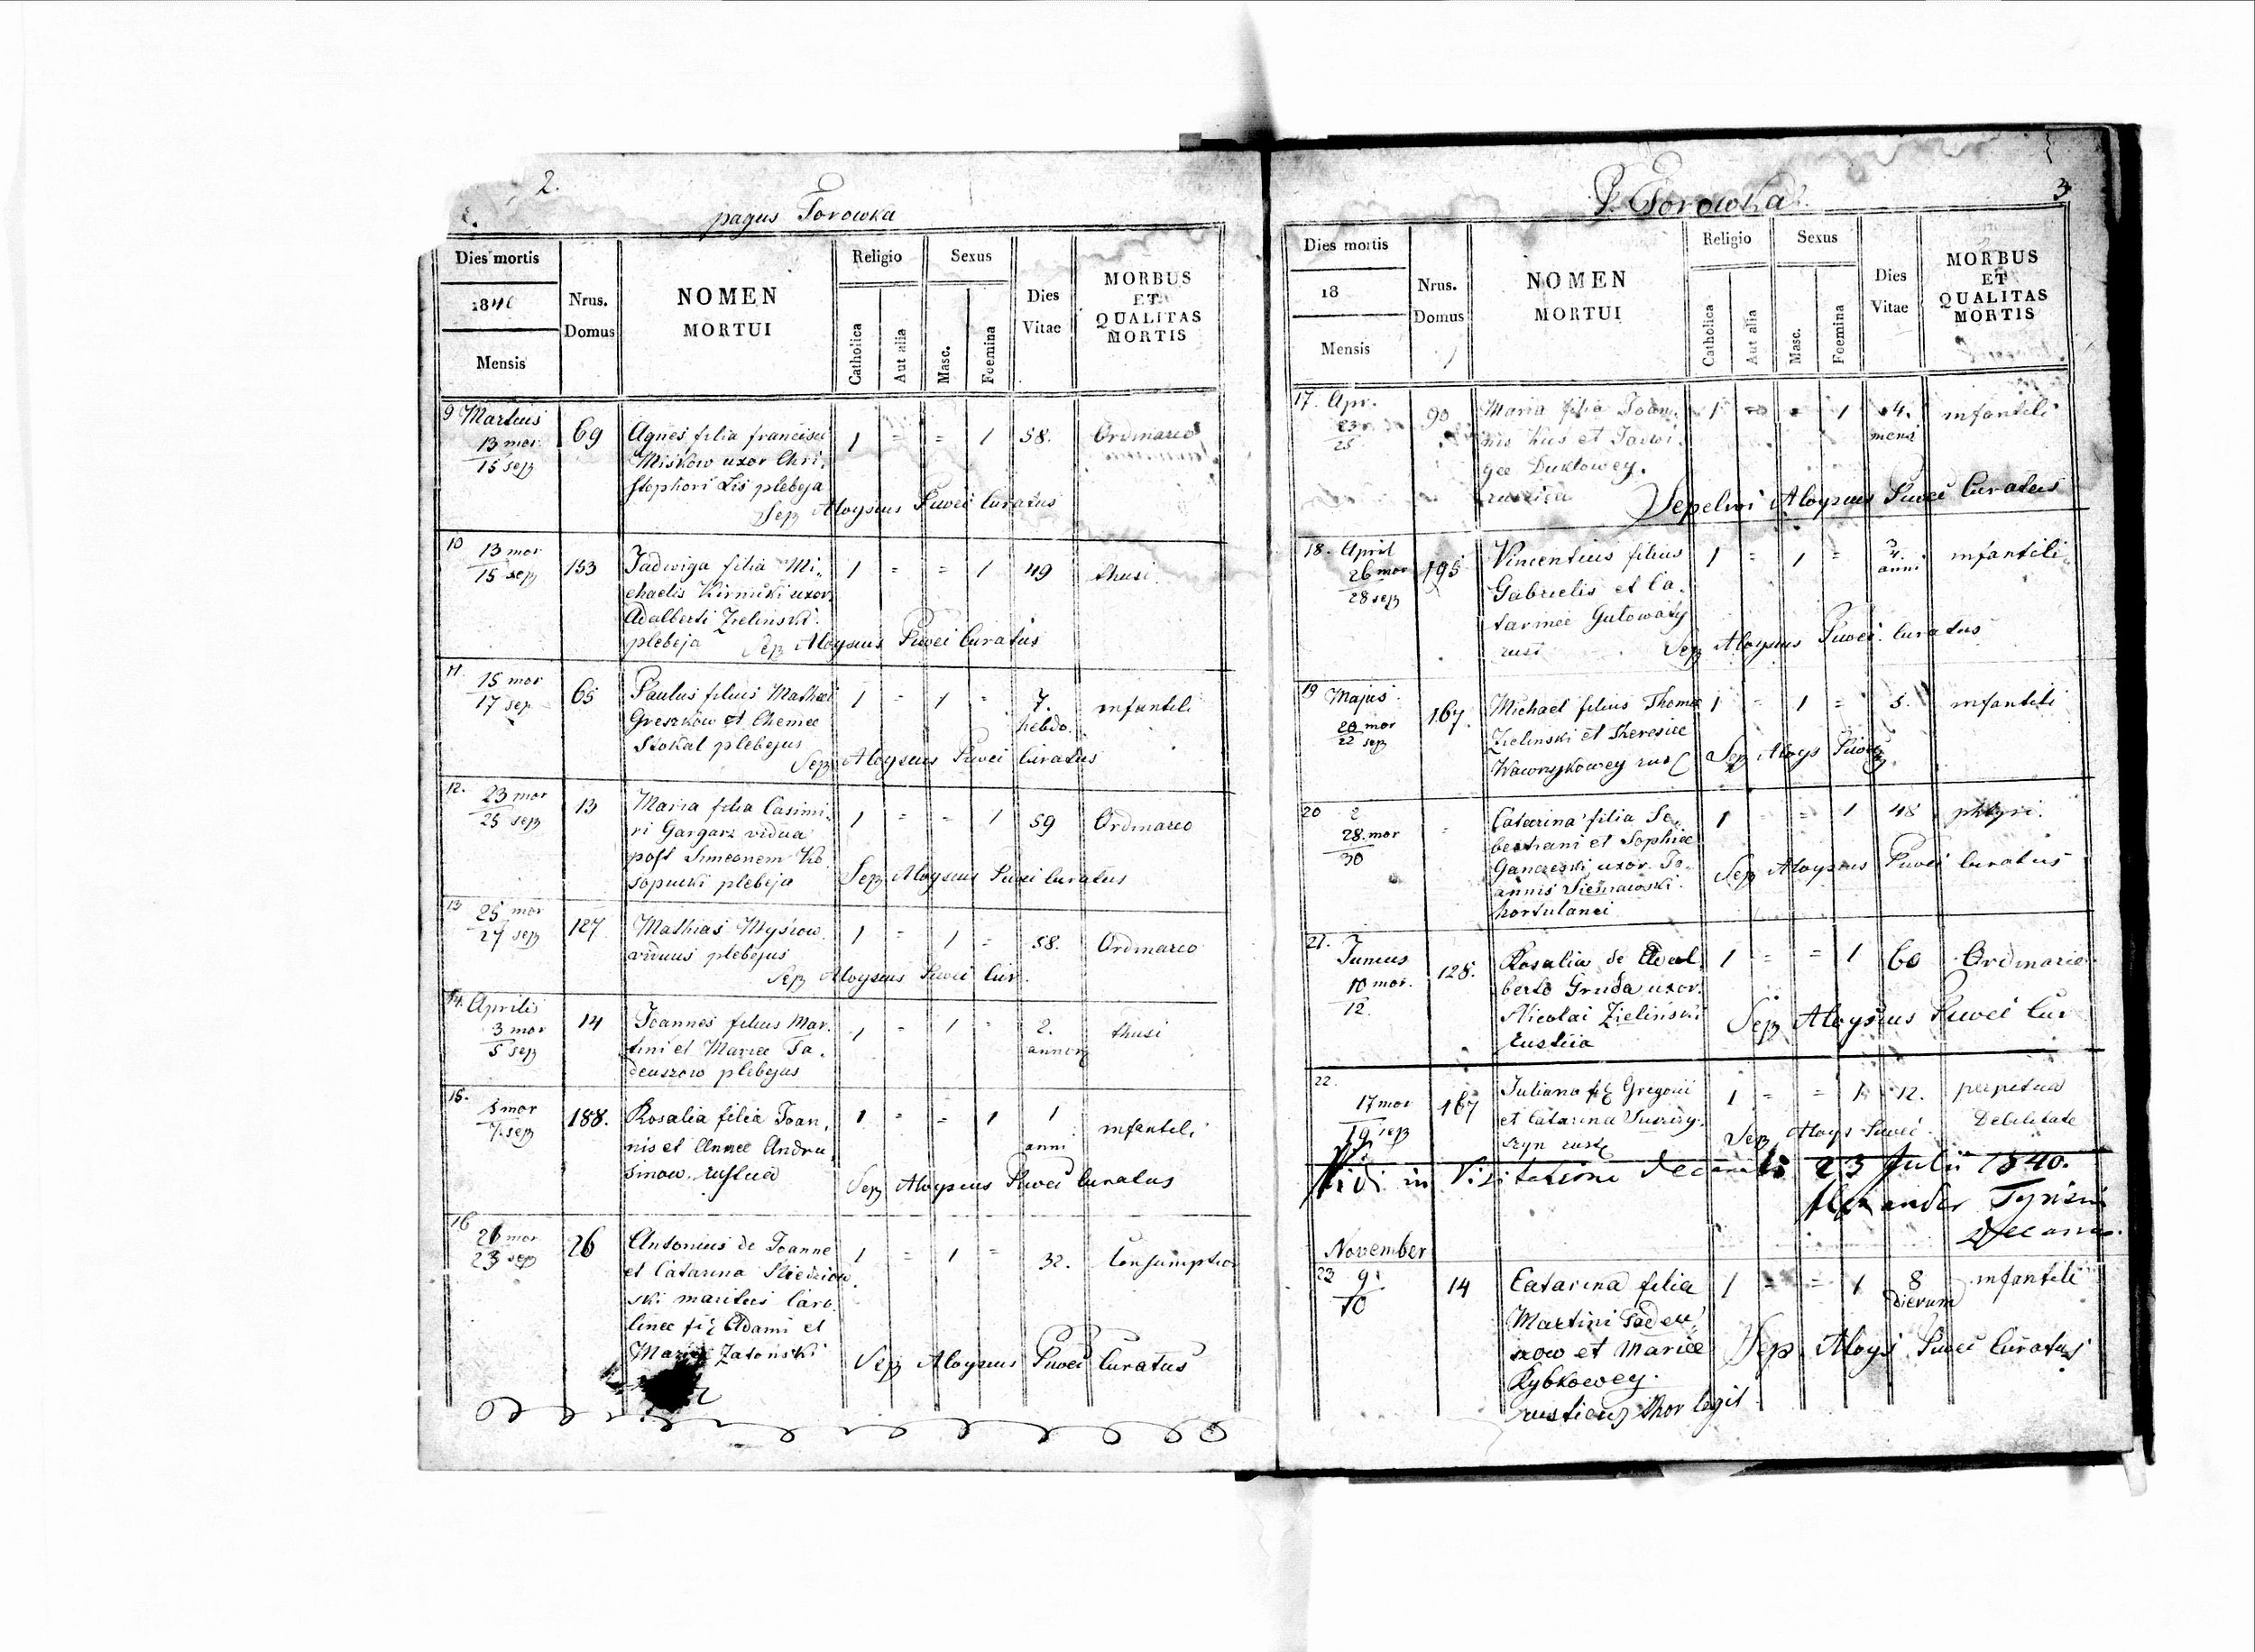 2.
pagus Torowka
Dies mortis
1840
Mensis
Nrus. Domus
NOMEN MORTUI
Religio
Catholica
Aut alia
Sexus
Masc.
Foemina
Dies Vitae
MORBUS ET QUALITAS MORTIS
9 Martius
13 mor
15 sep
69
Agnes filia francisci
Miśkow uxor Chri,
stophori Lis plebeja
1 = = 1 58. Ordinareo
Sep Aloysius Piwei Curatus
10 13 mor
15 sep
153
Jadwiga filia Mi,
chaelis Kirnicki uxor
Adalberti Zielinski
plebeja
1 = = 1 49 thusi
Sep Aloysius Piwei Curatus
11. 15 mor
17 sep
65
Paulus filius Mathaei
Greszkow et Chemee
Szokal plebejus
1 = 1 = 7. hebdo. infantili
Sep Aloysius Piwei Curatus
12. 23 mor
25 sep
13
Maria filia Casimi,
ri Gargarz vidua
post Simeonem Ko
sopucki plebeja
1 = = 1 59 Ordinareo
Sep Aloysius Piwei Curatus
13 25 mor
27 sep
127
Mathias Mysiow
viduus plebejus
1 = 1 = 58. Ordinareo
Sep Aloysius Piwei Cur.
14. Aprilis
3 mor
5 sep
14
Joannes filius Mar.
tini et Mariae Ta.
deuszow plebejus
1 = 1 = 2. annor thusi
15.
5 mor
7 sep
188.
Rosalia filia Joan,
nis et Annae Andru
sinow. rustica
1 = = 1 1 anni infantili
Sep Aloysius Piwei Curatus
16
21 mor
23 sep
26
Antonius de Joanne
et Catarina Niedziow
ski maritus Caro
linee fil Adami et
Mariae Zatoński
1 = 1 = 32. Consumptio
Sep Aloysius Piwei Curatus
P. Torowka
3
Dies mortis
18
Mensis
Nrus. Domus
NOMEN MORTUI
Religio
Catholica
Aut alia
Sexus
Masc.
Foemina
Dies Vitae
MORBUS ET QUALITAS MORTIS
17. Apr.
23
25
90
Maria filia Joan,
nis Kus et Jadwi
gee Duktowey.
rustica
1 = = 1 4. mens infantili
Sepelivi Aloysius Piwei Curatus
18. April
26 mor
28 sep
195
Vincentius filius
Gabrielis et Ca.
tarinee Gulowaty
rust
1 = 1 = anni infantili
Sep Aloysius Piwei Curatus
19 Majus
20 mor
22 sep
167.
Michael filius Thomae
Zielinski et Theresiae
Wawrzykowey rust
1 = 1 = 5. infantili
Sep Aloys Piwei
20
28. mor
30
Catarina filia Se,
bestiani et Sophiee
Ganczeski uxor Jo
annis Sieniawski
hortulanei
1 = = 1 48 phtysi.
Sep Aloysius Piwei Curatus
21.
Junius
10 mor.
12.
128.
Rosalia de Adal
berto Gruda uxor
Nicolai Zieliński
rustica
1 = = 1 60 Ordinario
Sep Aloysius Piwei Cur
22.
17 mor
19 sep
167
Juliana fil Gregorii
et Catarina
1 = = 1 12. perpetua
Debilitate
Sep Aloys Piwei
Vidi in Visitatione Decanali 23 Julii 1840.
Alexander
Decanus.
November
23 9.
10
14
Catarina filia
Martini Tadeu,
szow et Mariee
Rybkowey.
rusticus thor legit
1 = = 1 8 dierum infantili
Sep. Aloys Piwei Curatus